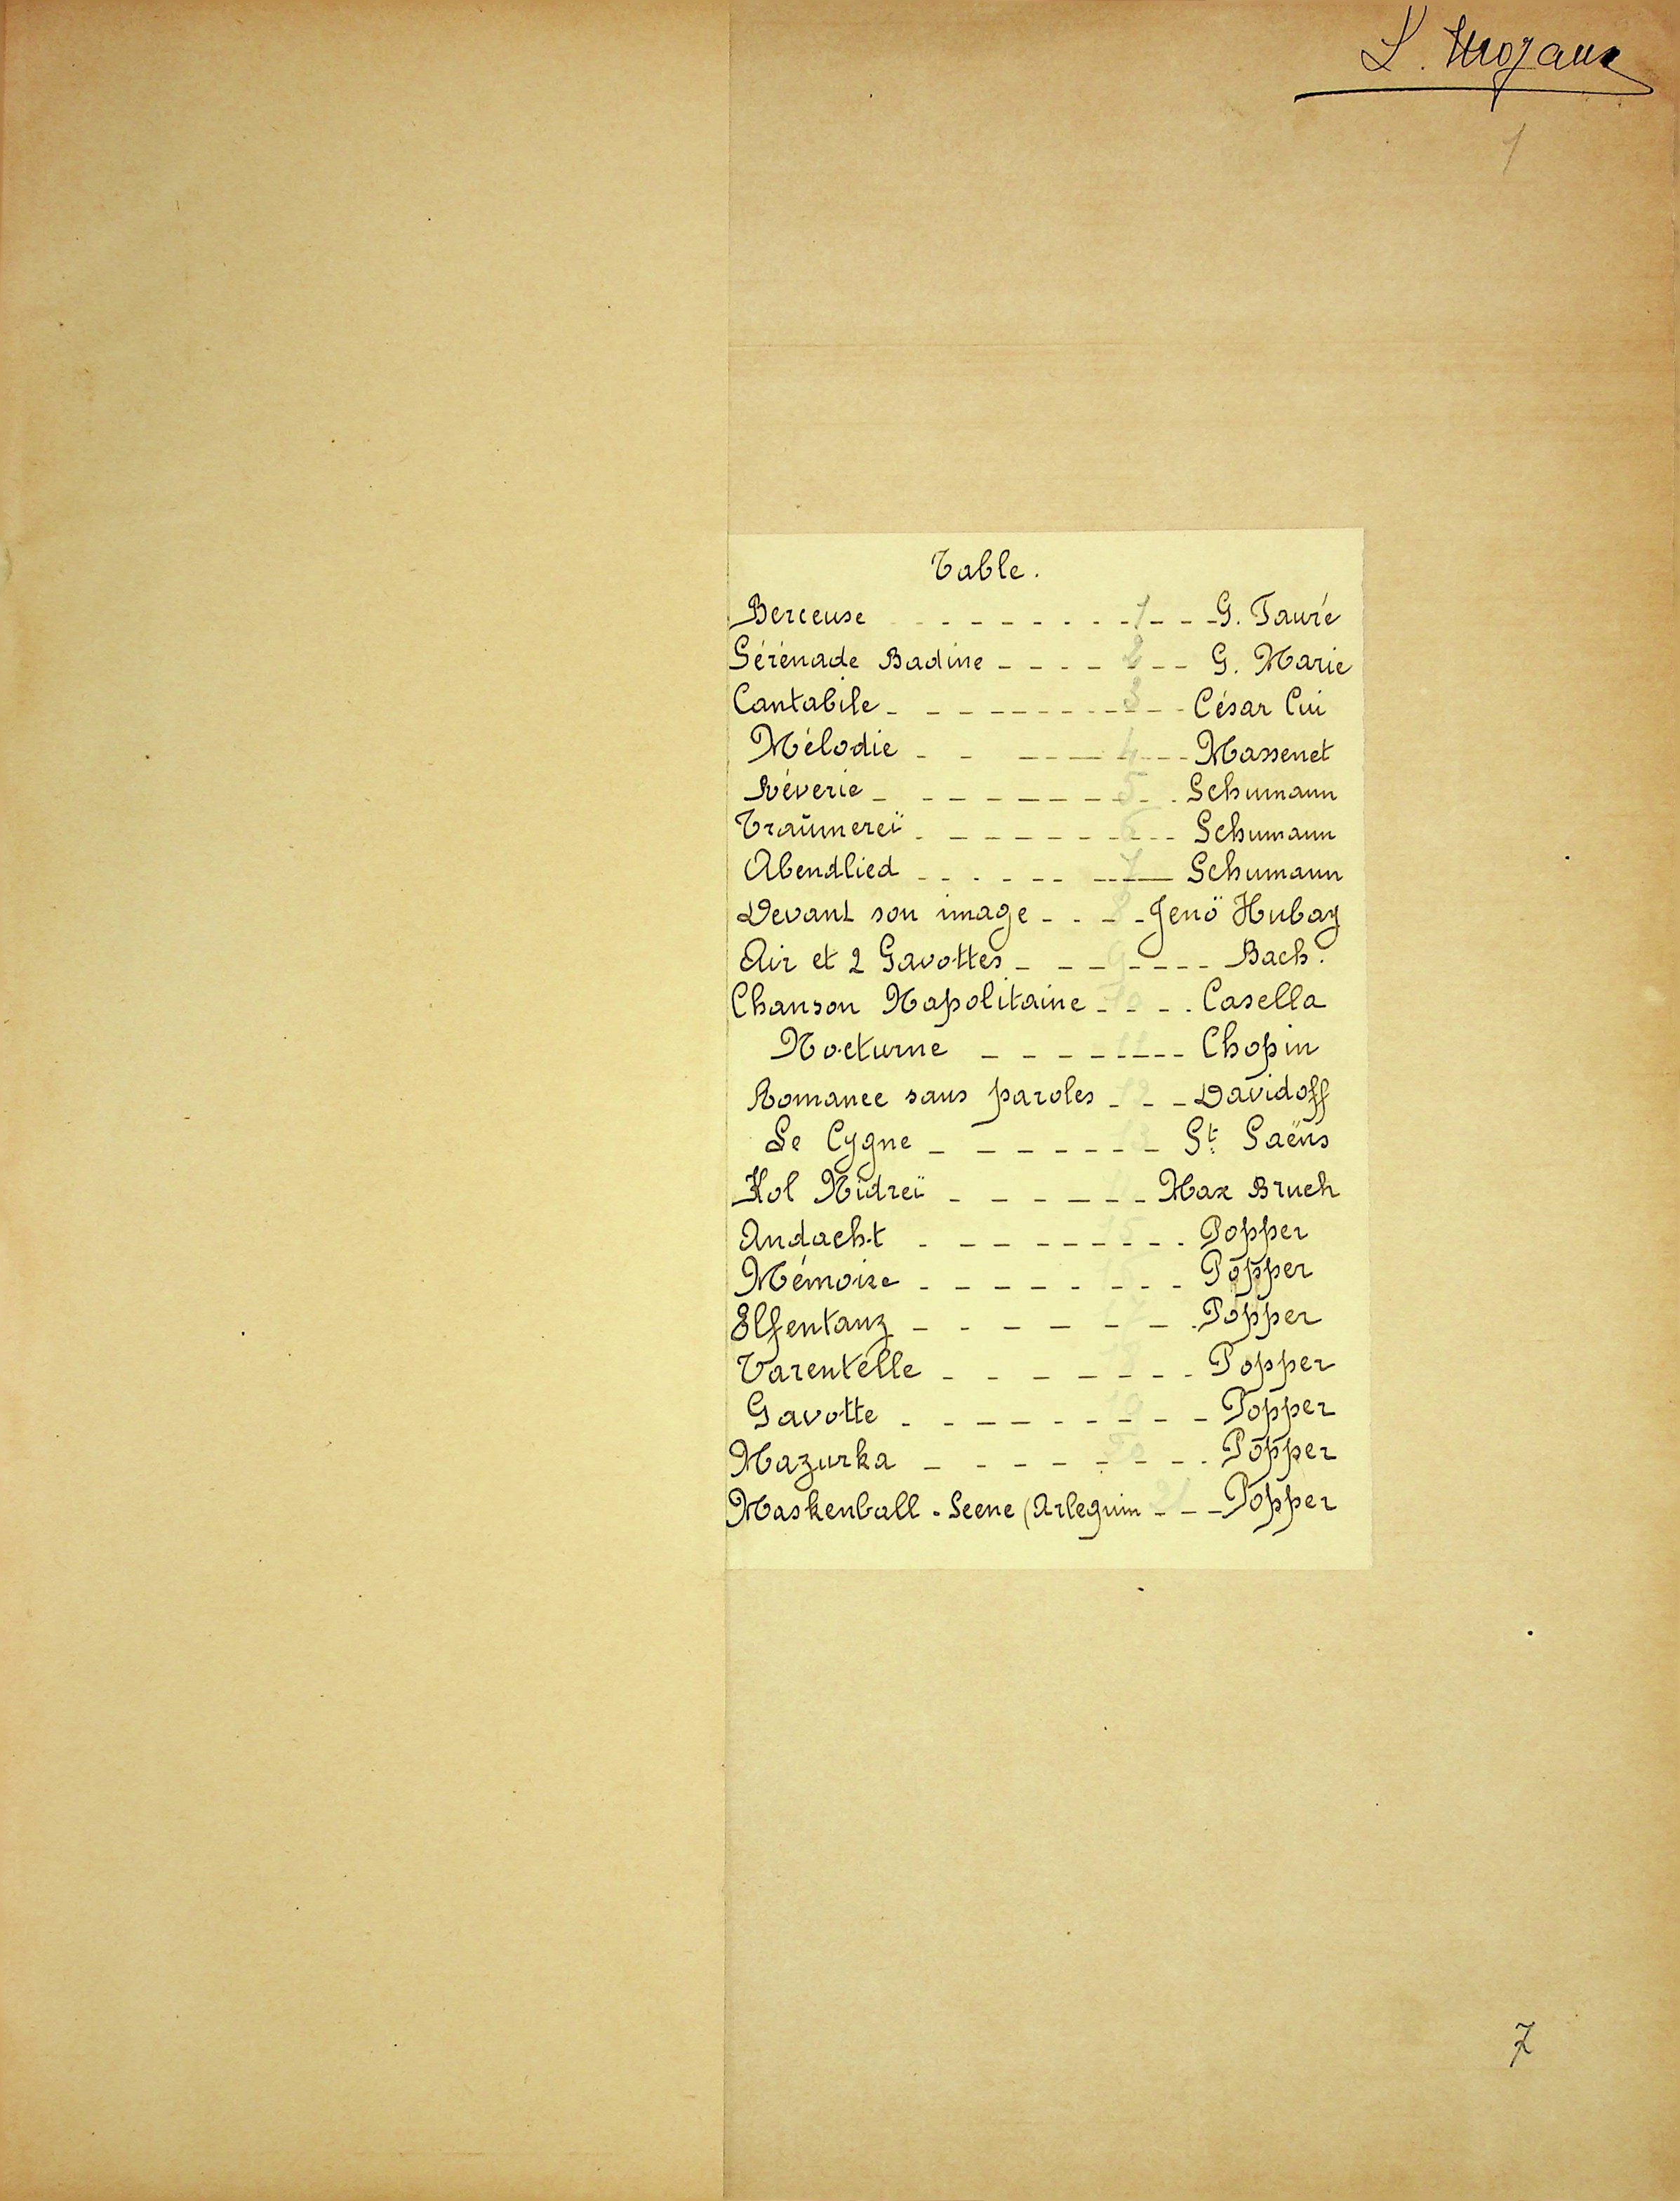 1
Table.
Berceuse - - - - - - - - 1 - - - G. Fauré
Sérénade Badine - - - - 2 - - G. Marie
Cantabile - - - - - - - - 3 - - César Cui
Mélodie - - - - - 4 - - - Massenet
Rêverie - - - - - - - 5 - - Schumann
Traümereï - - - - - - 6 - - - Schumann
Abendlied - - - - - - - 7 - Schumann
Devant son image - - 8 - Jenö Hubay
Air et 2 Gavottes - - - 9 - - - - Bach.
Chanson Napolitaine - 10 - - Casella
Nocturne - - - - 11 - - - Chopin
Romance sans paroles - 12 - - Davidoff
Le Cygne - - - - - 13 - St. Saëns
Kol Nidreï - - - - - - Max Bruch
Andacht - - - - - 15 - - - Popper
Mémoire - - - - - - - - Popper
Elfentanz - - - - - - - Popper
Tarentelle - - - - 18 - - - Popper
Gavotte - - - - - - 19 - - - Popper
Mazurka - - - - - 20 - - - Popper
Maskenball - Scene (Arlequin - 21 - - Popper
7